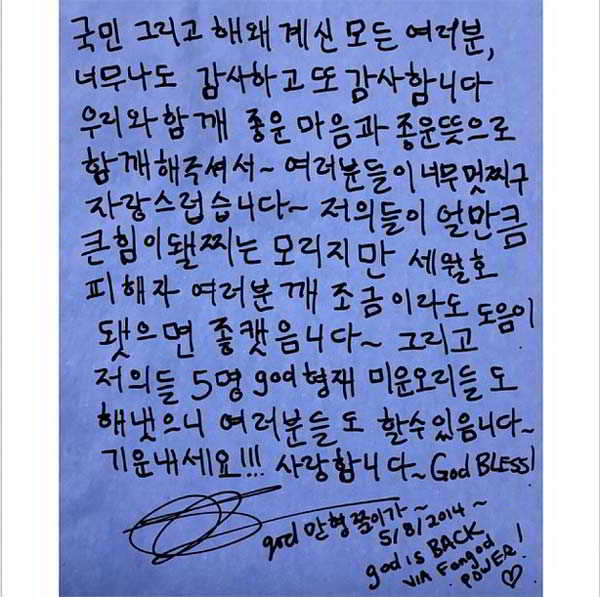 국민 그리고 해왜 계신 모든 여러분,
너무나도 감사하고 또 감사합니다
우리와 함깨 좋운 마음과 좋운뜻으로
함깨해주셔서~ 여러분들이 너무 멋찌구
자랑스럽습니다~ 저의들이 얼만큼
큰힘이됄찌는 모리지만 세월호
피해자 여러분 깨 조금이라도 도음이
됏으면 좋캣음니다~ 그리고
저의들 5명 god형재 미운오리들도
해냇으니 여러분들도 할수있음니다~
기운내세요!!! 사랑합니다~ God BLESS!
god 만형쭌이가~
5/8/2014~
god is BACK
VIA Fangod
POWER! ♡